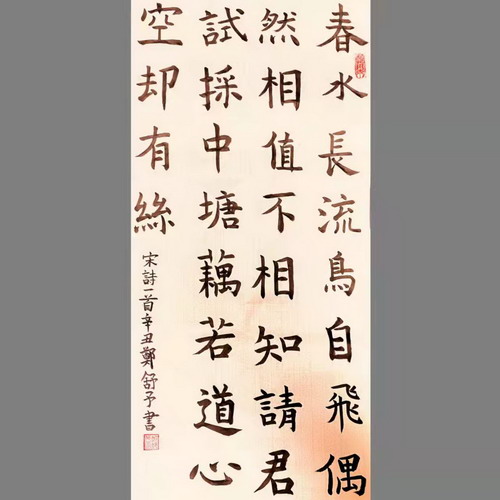 春水長流鳥自飛偶
然相值不相知請君
試採中塘藕若道心
空却有絲
宋詩一首辛丑鄭舒予書